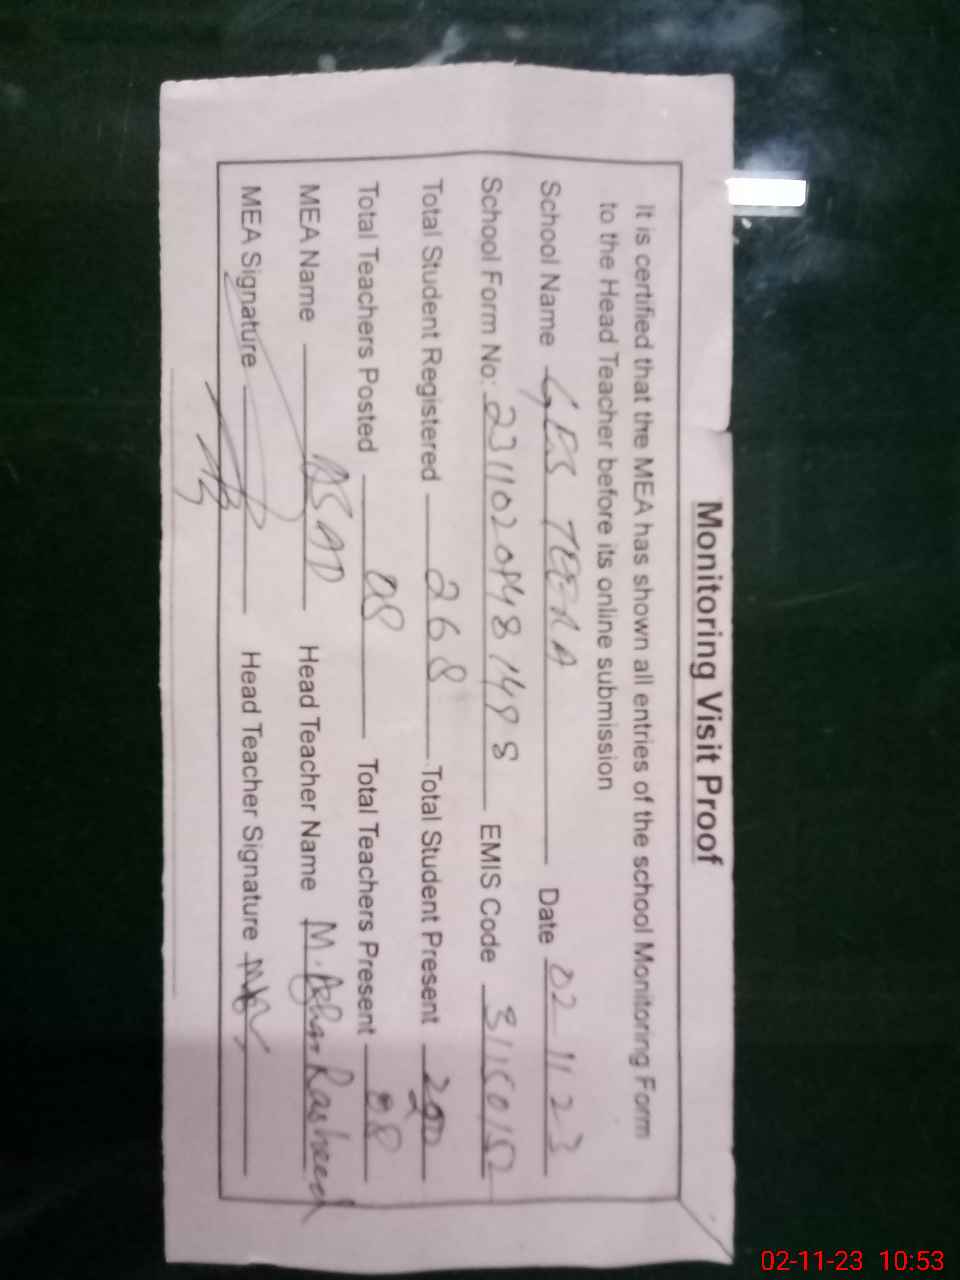 Monitoring Visit Proof
It is certified that the MEA has shown all entries of the school Monitoring Form
to the Head Teacher before its online submission
School Name GES TEERA Date 02 11 23
School Form No: EMIS Code 31150152
Total Student Registered 268 Total Student Present
Total Teachers Posted 08 Total Teachers Present 08
MEA Name ASAD Head Teacher Name M. Azhar Rasheed
MEA Signature Head Teacher Signature
02-11-23 10:53